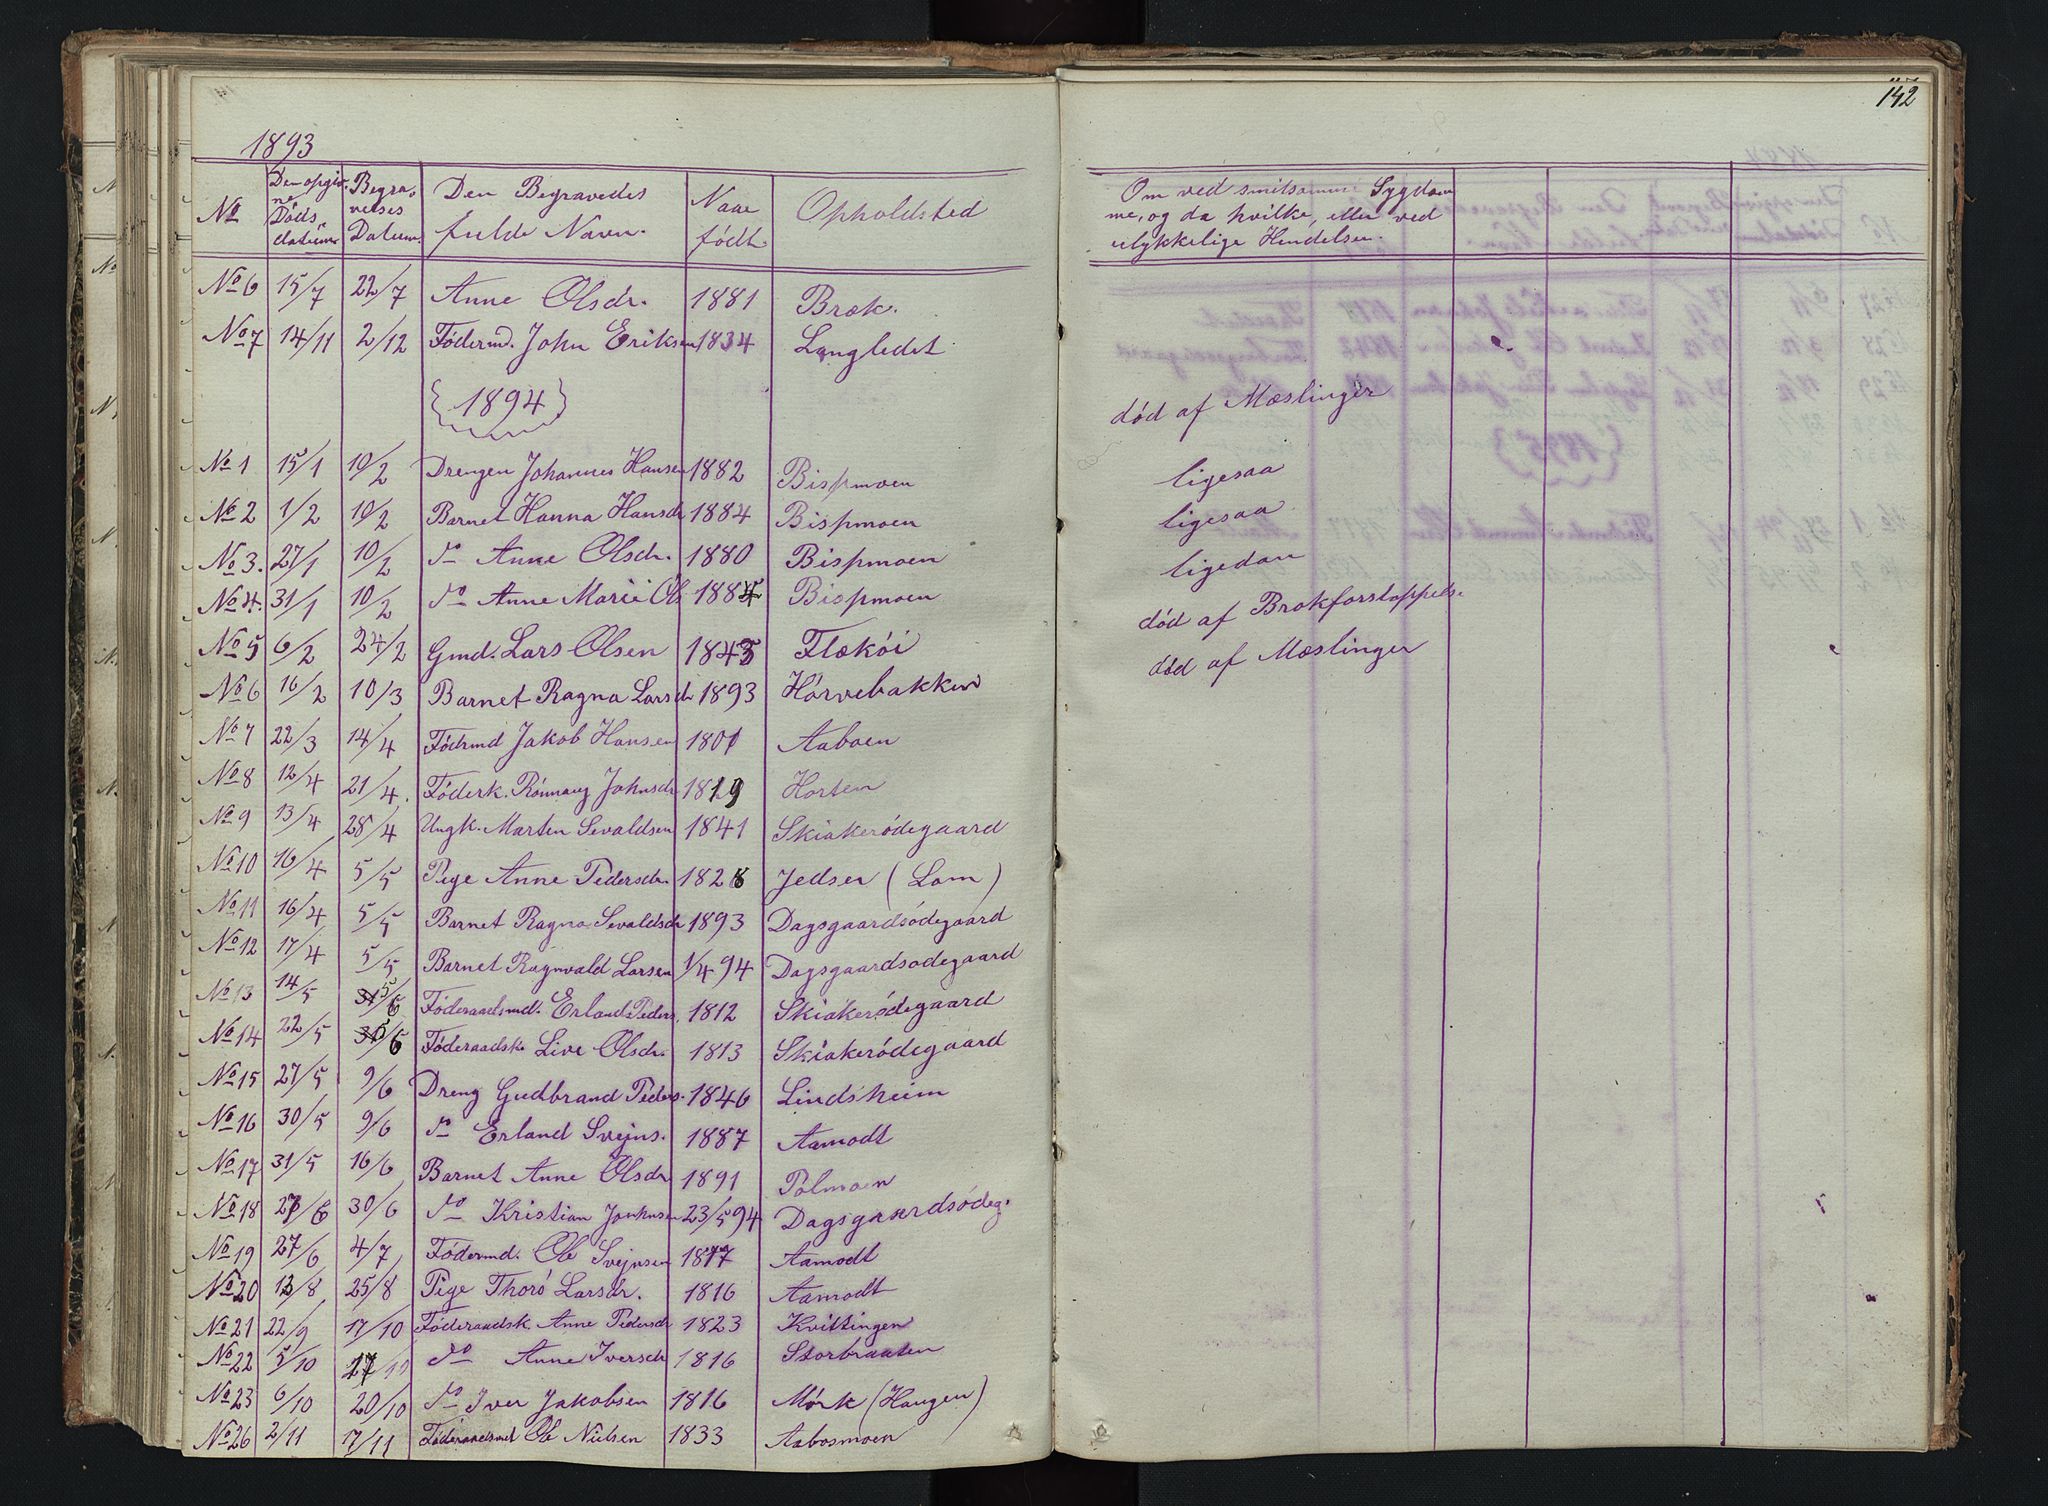 142
1893
No
Den opgiv-
ne
Døds
datum
Begra-
velses
Datum.
Den Begravedes
fulde Navn.
Naar
født.
Opholdsted
Om ved smitsomme Sygdom
me, og da hvilke, eller ved
ulykkelige Hendelser.
No 6 15/7 22/7 Anne Olsdr. 1881 Bræk.
No 7 14/11 2/12 Fødermd. John Eriksen 1834 Langledet
{1894}
No 1 15/1 10/2 Drengen Johannes Hansen 1882 Bispmoen død af Mæslinger
No 2 1/2 10/2 Barnet Hanna Hansdr 1884 Bispmoen ligesaa
No 3. 27/1 10/2 do Anne Olsdr. 1880 Bispmoen ligesaa
No 4. 31/1 10/2 do Anne Marie Ols 1884 Bispmoen ligedan
No 5 6/2 24/2 Gmd. Lars Olsen 1843 Flækøi død af Brokforstoppelse
No 6 16/2 10/3 Barnet Ragna Larsdr 1893 Hórvebakken død af Mæslinger
No 7 22/3 14/4 Fødrmd Jakob Hansen 1801 Aaboen
No 8 12/4 21/4. Føderk. Rønnaug Johnsdr 1819 Horten
No 9 13/4 28/4 Ungk. Marten Sevaldsen 1841 Skiakerødegaard
No 10 16/4 5/5 Pige Anne Pedersdr. 1828 Jedser (Lom)
No 11 16/4 5/5 Barnet Ragna Sevaldsdr 1893 Dagsgaardsødegaard
No 12 17/4 5/5 Barnet Ragnvald Larsen 1/4 94 Dagsgaardsødegaard
No 13 14/5 5/6 Føderaadsmd. Erland Peders. 1812 Skiakerødegaard
No 14 22/5 5/6 Føderaadsk Live Olsdr. 1813 Skiakerødegaard
No 15 27/5 9/6 Dreng Gudbrand Peders. 1846 Lindsheim
No 16 30/5 9/6 do Erland Svejns. 1887 Aamodt
No 17 31/5 16/6 Barnet Anne Olsdr 1891 Polmoen
No 18 27/6 30/6 do Kristian Jonhnsen 23/5 94 Dagsgaardsødeg.
No 19 27/6 4/7 Fødermd. Ole Svejnsen 1817 Aamodt
No 20 13/8 25/8 Pige Thorø Larsdr. 1816 Aamodt
No 21 22/9 17/10 Føderaadsk. Anne Pedersdr 1823 Kvittingen
No 22 5/10 17/10 do Anne Iversdr 1816 Storbraaten
No 23 6/10 20/10 do Iver Jakobsen 1816 Mørk (Haugen)
No 26 2/11 17/11 Føderaadsmd Ole Nielsen 1833 Aabosmoen